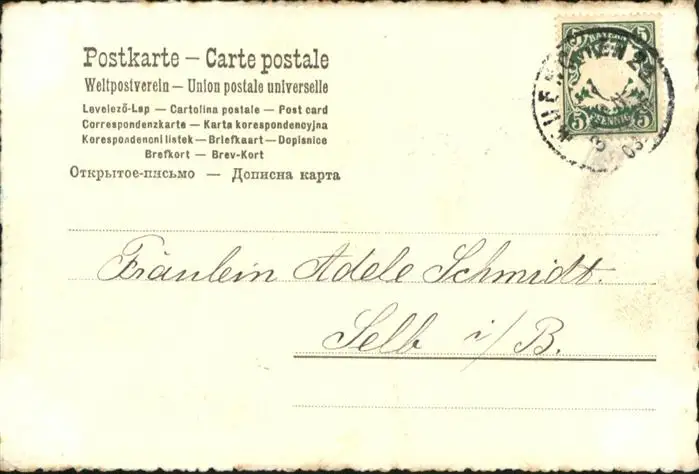 Postkarte — Carte postale
Weltpostverein — Union postale universelle
Levelező-Lap — Cartolina postale — Post card
Correspondenzkarte — Karta korespondencyjna
Korespondencni listek — Briefkaart — Dopisnice
Brefkort — Brev-Kort
Открытое-письмо — Дописна карта
5 BAYERN 5
5 PFENNIG 5
MUENCHEN 2
03
Fräulein Adele Schmidt.
Selb i/B.